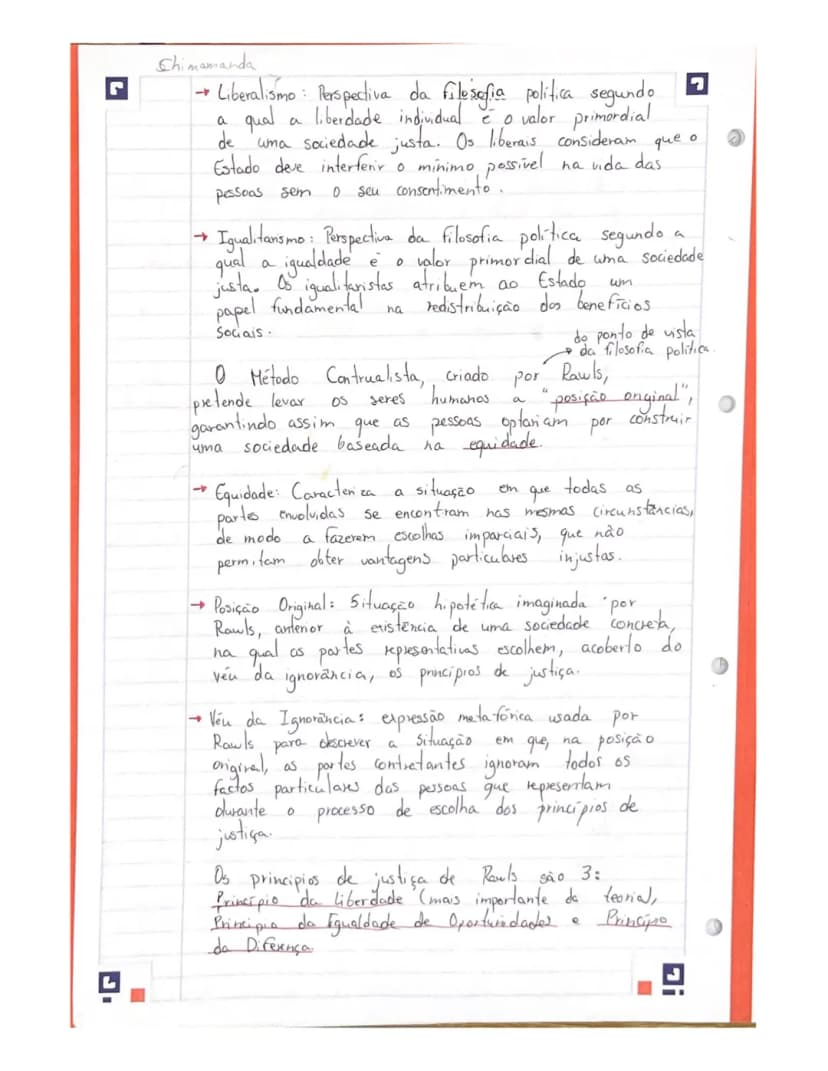 Chimamanda
→ Liberalismo: Perspectiva da filosofia política segundo
a qual a liberdade individual é o valor primordial
de uma sociedade justa. Os liberais consideram que o
Estado deve interferir o mínimo possível na vida das
pessoas sem o seu consentimento.
→ Igualitarismo: Perspectiva da filosofia política segundo a
qual a igualdade é o valor primordial de uma sociedade
justa. Os igualitaristas atribuem ao Estado um
papel fundamental na redistribuição dos benefícios
sociais.
do ponto de vista
da filosofia política.
O Método Contrualista, criado por Rawls,
pretende levar os seres humanos a "posição original",
garantindo assim que as pessoas optariam por construir
uma sociedade baseada na equidade.
→ Equidade: Caracteriza a situação em que todas as
partes envolvidas se encontram nas mesmas circunstâncias,
de modo a fazerem escolhas imparciais, que não
permitam obter vantagens particulares injustas.
→ Posição Original: Situação hipotética imaginada por
Rawls, anterior à existência de uma sociedade concreta,
na qual as partes representativas escolhem, acoberto do
véu da ignorância, os princípios de justiça.
→ Véu da Ignorância: expressão metafórica usada por
Rawls para descrever a situação em que, na posição
original, as partes contratantes ignoram todos os
factos particulares das pessoas que representam
durante o processo de escolha dos princípios de
justiça.
Os principios de justiça de Rawls são 3:
Princípio da liberdade (mais importante da teoria),
Principio da Igualdade de Oportunidades e Princípio
da Diferença.